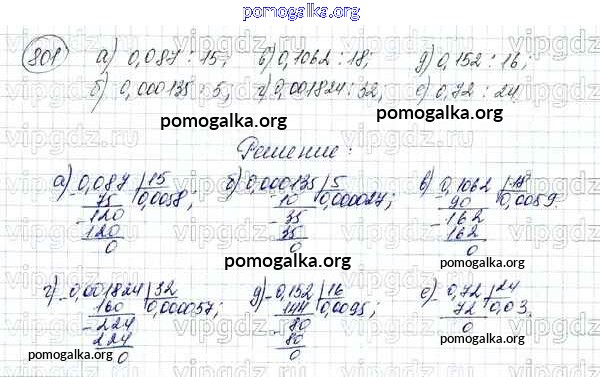 pomogalka.org
801 а) 0,087 : 15; в) 0,1062 : 18; д) 0,152 : 16;
б) 0,000135 : 5; г) 0,001824 : 32; е) 0,72 : 24.
pomogalka.org pomogalka.org
Решение:
а) 0,087 15 б) 0,000135 5 в) 0,1062 18
- 75 0,0058; - 10 0,000027; - 90 0,0059
- 120 - 35 - 162
120 35 162
0 0 0
pomogalka.org pomogalka.org
г) - 0,001824 32 д) - 0,152 16 е) - 0,72 24
160 0,000057; 144 0,0095; 72 0,03.
- 224 - 80 0
224 80
0 0
pomogalka.org pomogalka.org pomogalka.org